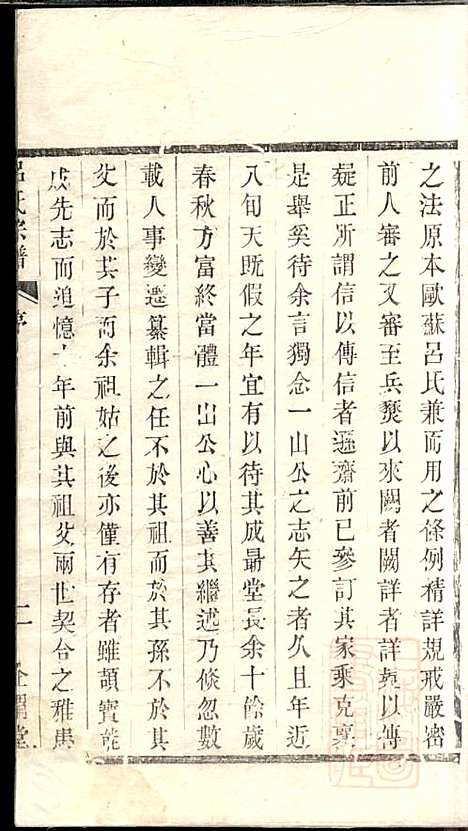 之法原本歐蘇呂氏兼而用之條例精詳規戒嚴密
前人審之又審至兵燹以來闕者闕詳者詳疑以傳
疑正所謂信以傳信者遜齋前已參訂其家乘克襄
是舉奚待余言獨念一山公之志矢之者久且年近
八旬天既假之年宜有以待其成勗堂長余十餘歲
春秋方富終當體一山公心以善其繼述乃倐忽數
載人事變遷纂輯之任不於其祖而於其孫不於其
父而於其子而余祖姑之後亦僅有存者雖頡實能
成先志而追憶十年前與其祖父兩世契合之雅焉
呂氏宗譜
序
二